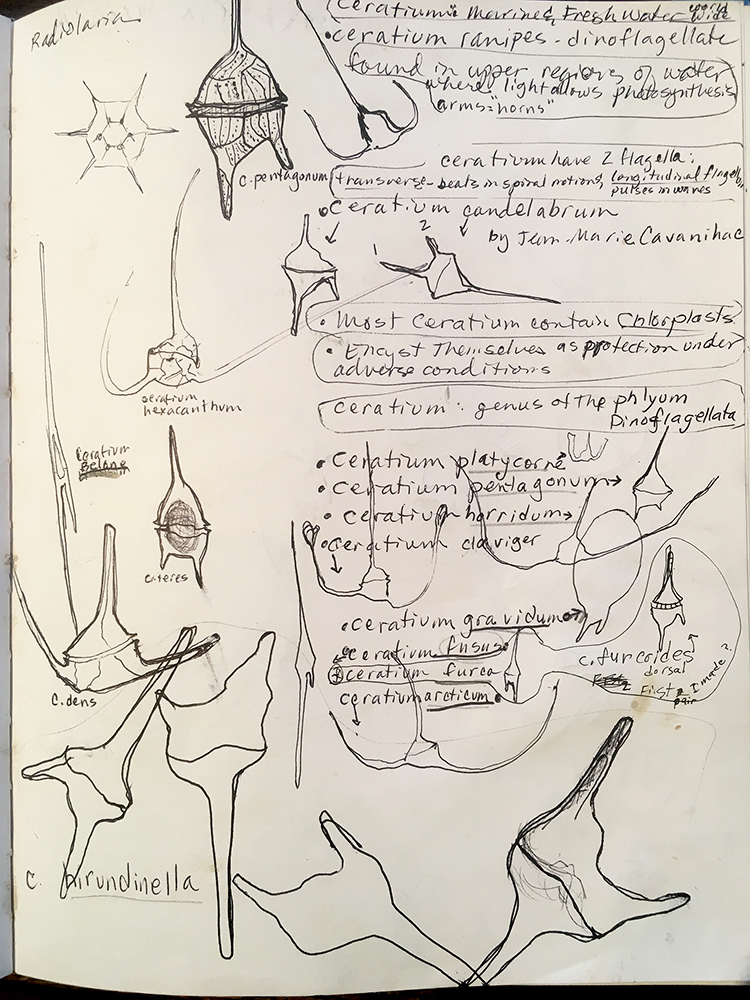 Radiolaria
Ceratium: Marine & Fresh Water world wide
• ceratium ranipes - dinoflagellate
found in upper regions of water
where light allows photosynthesis
arms = "horns"
C. pentagonum
ceratium have 2 flagella:
transverse - beats in spiral motions, longitudinal
pulses in waves
• Ceratium candelabrum
by Jean-Marie Cavanihac
1 2
• Most Ceratium contain Chlorplasts
• Encyst Themselves as protection under
adverse conditions
ceratium
hexacanthum
ceratium: genus of the phlyum
Dinoflagellata
Ceratium
Belone
• Ceratium platycorne
• Ceratium pentagonum
• Ceratium horridum
• Ceratium claviger
C. teres
• ceratium gravidum
ceratium fusus
ceratium furca
ceratium arcticum
C. furcoides
dorsal
First 2 I made?
pair
C. dens
C. hirundinella